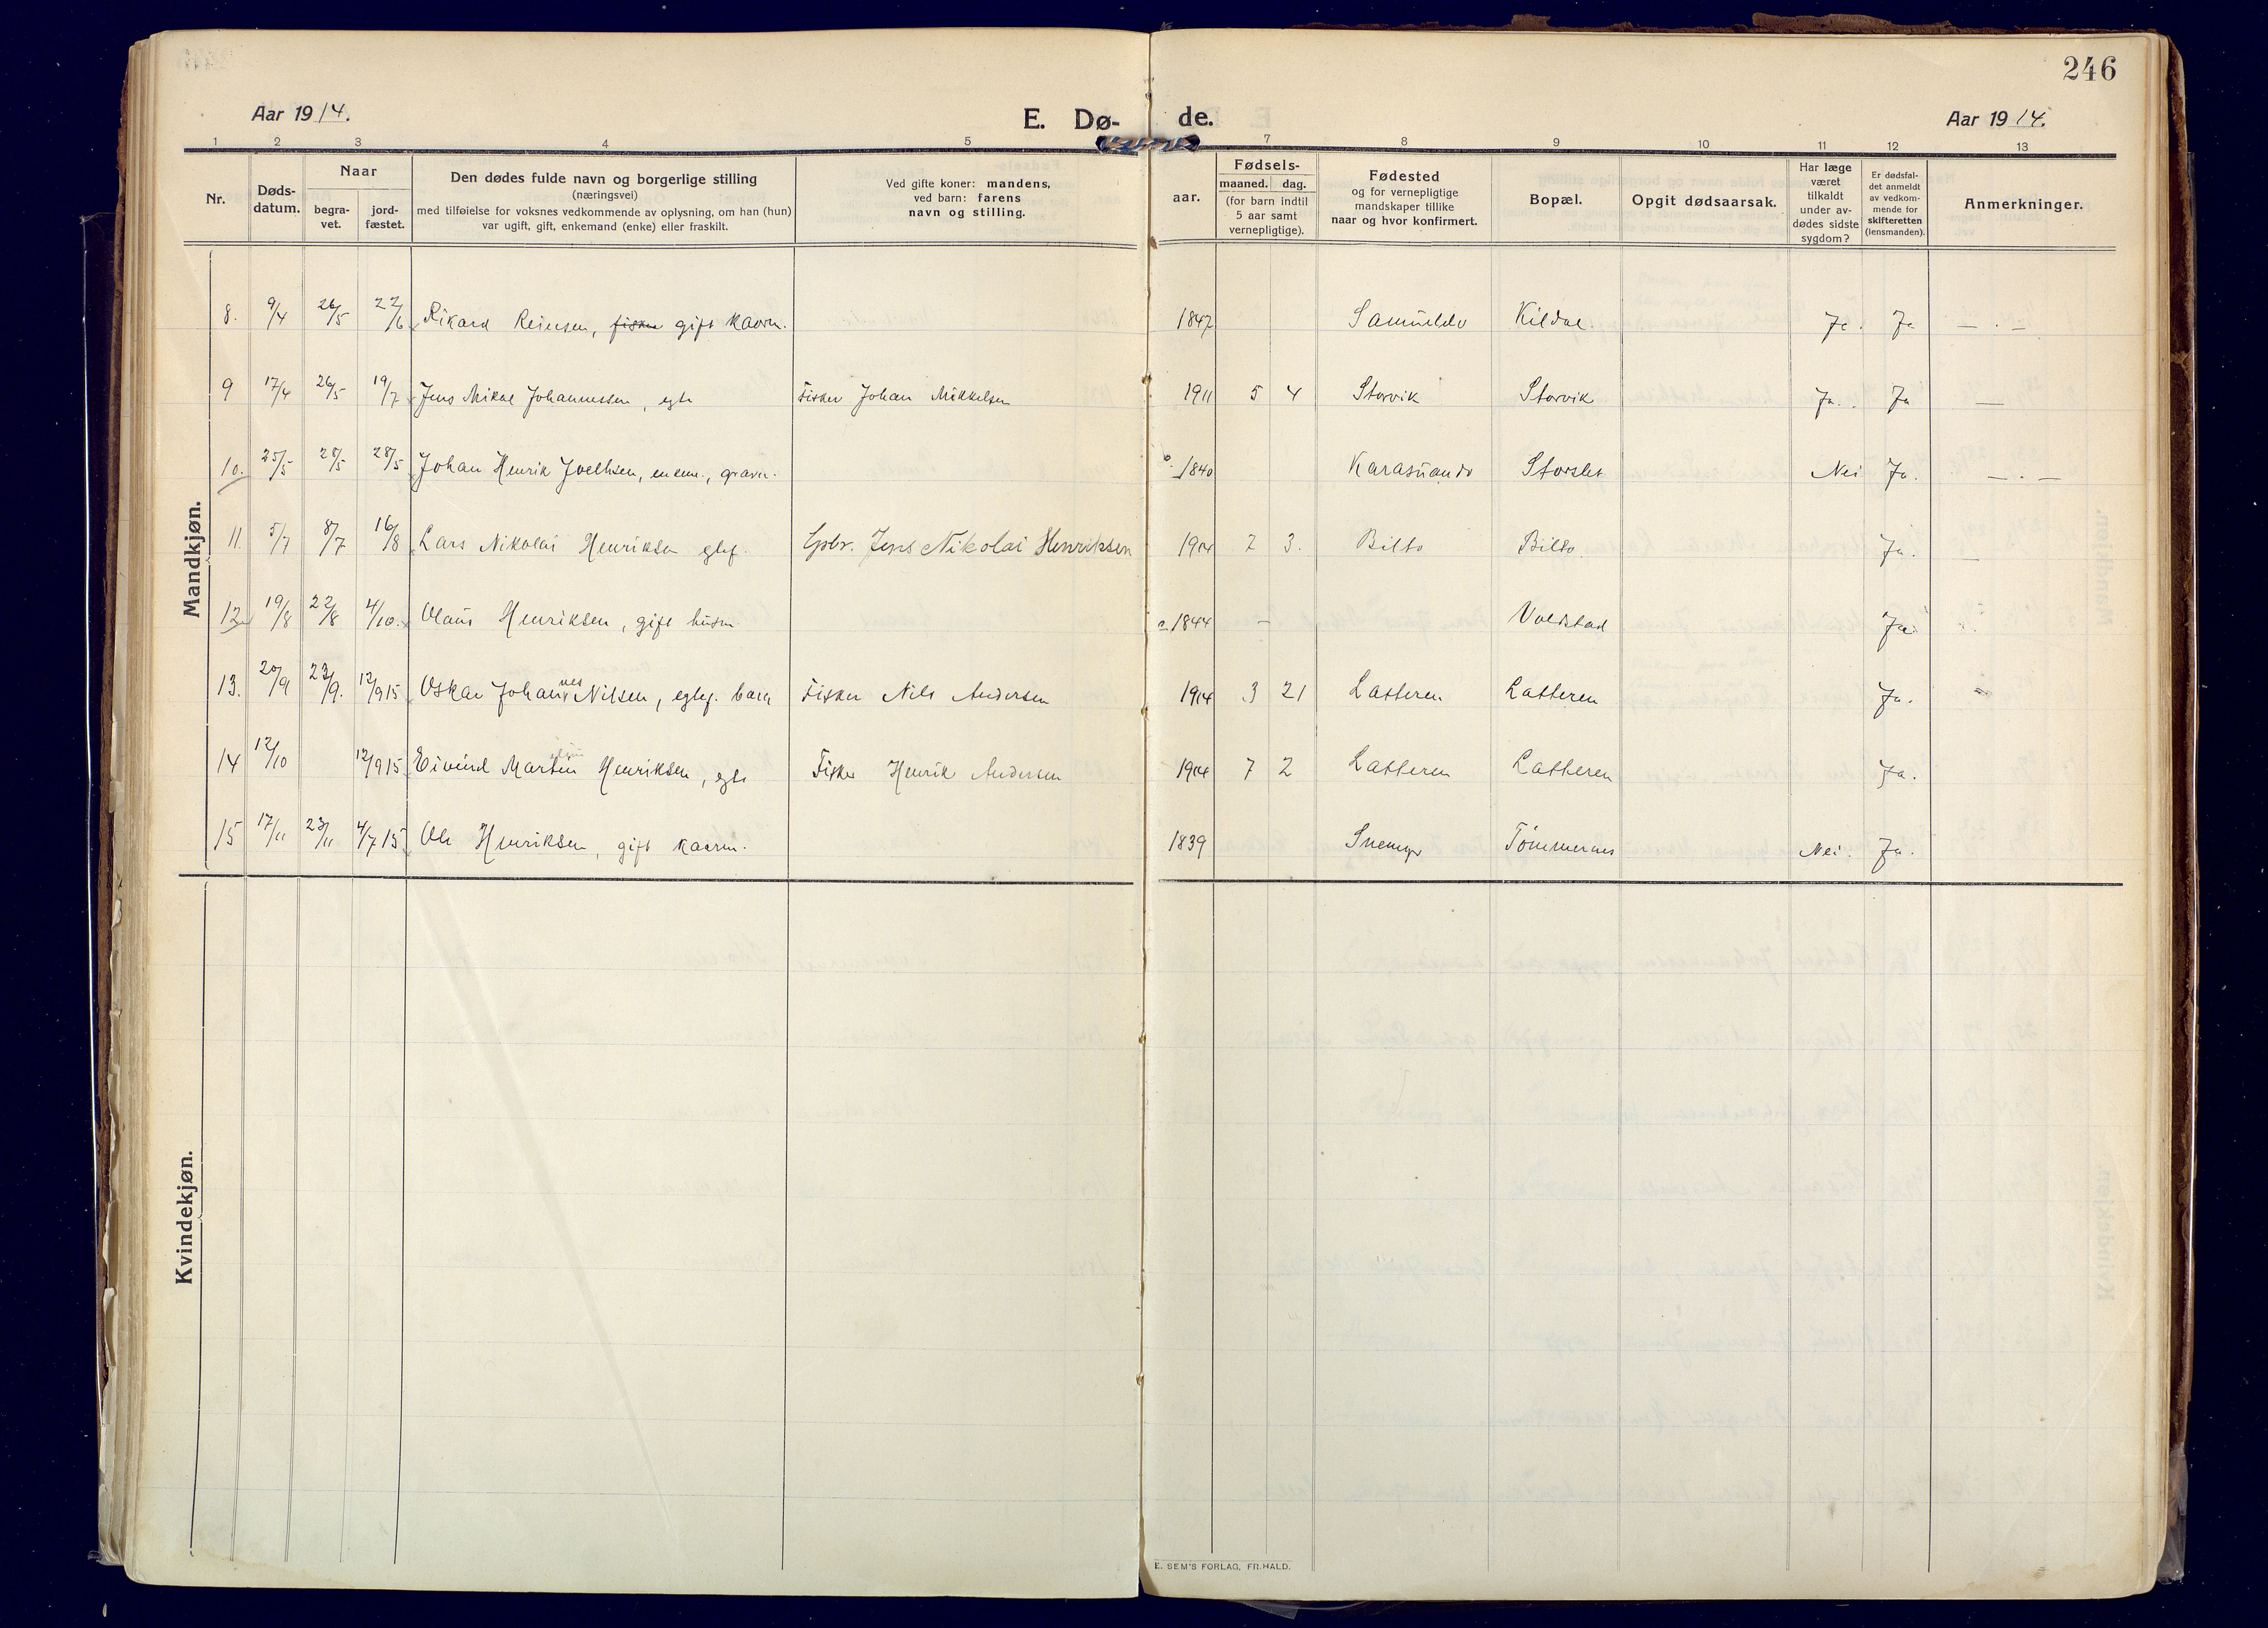 246
Aar 1914.
E. Dø-
de.
Aar 1914.
1 2 3 4 5 7 8 9 10 11 12 13
Nr.
Døds-
datum.
Naar
begra-
vet.
jord-
fæstet.
Den dødes fulde navn og borgerlige stilling
(næringsvei)
med tilføielse for voksnes vedkommende av oplysning, om han (hun)
var ugift, gift, enkemand (enke) eller fraskilt.
Ved gifte koner: mandens,
ved barn: farens
navn og stilling.
aar.
Fødsels-
maaned. dag.
(for barn indtil
5 aar samt
vernepligtige).
Fødested
og for vernepligtige
mandskaper tillike
naar og hvor konfirmert.
Bopæl.
Opgit dødsaarsak.
Har læge
været
tilkaldt
under av-
dødes sidste
sygdom?
Er dødsfal-
det anmeldt
av vedkom-
mende for
skifteretten
(lensmanden).
Anmerkninger.
Mandkjøn.
8. 9/4 26/5 22/6 Rikard Reiersen, fisker gift kaarm. 1847 Kildal. Ja. Ja — . —
9 17/4 26/5 19/7 Jens Mikal Johannessen, egte Fisker Johan Mikkelsen 1911 5 4 Storvik Storvik Ja. Ja —
10. 25/5 28/5 28/5 Johan Henrik enkem., 1840 Karasuando Storslet Nei Ja. — . —
11. 5/7 8/7 16/8 Lars Nikolai Henriksen egtef. Gbr. Jens Nikolai Henriksen 1914 2 3. Bilto Bilto. Ja. —
12 19/8 22/8 4/10. Olaus Henriksen, gift husm. 1844 — Ja
13. 20/9 23/9. 12/9 15 Oskar Johannes Nilsen, egtef. barn Fisker Nils Andersen 1914 3 21 Latteren Latteren Ja.
14 12/10 12/9 15 Eivind Martin Henriksen, egte Fisker Henrik Andersen 1914 7 2 Latteren Latteren Ja.
15 17/11 23/11 4/7 15 Ole Henriksen, gift kaarm. 1839 Tömmernes Nei. Ja.
Kvindekjøn.
E. SEM'S FORLAG, FR.HALD.